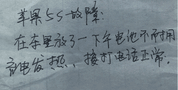 苹果5S故障:
在李里放了一下午电池不耐用
充电发热,接打电话正常,